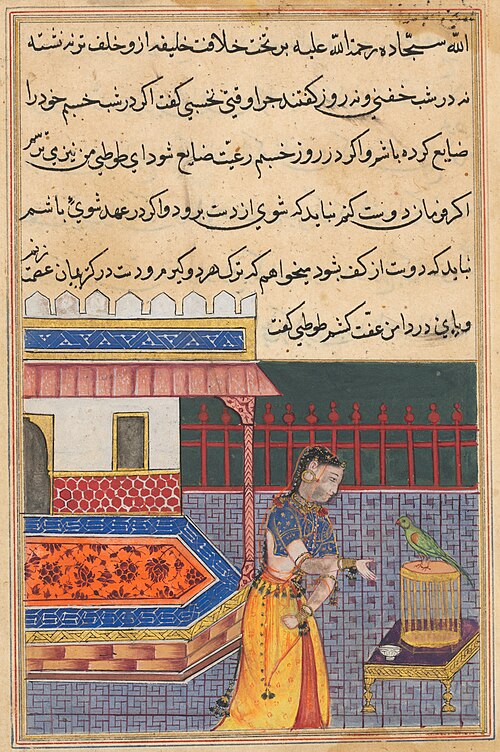 الله سجاده رحمة الله علیه بر تخت خلافت خلیفه از و خلف تر ننشسته
نه در شب خفتی و نه روز کفتند جرا وقتی نخسپی کفت اکر در شب خسپم خود را
ضایع کرده باشم و اکر در روز خسپم رعیت ضایع شود ای طوطی من نیز می ترسم
اکر وفا ز دوست کنم نباید که شوی از دست برود و اکر در عهد شوی باشم
نباید که دوست از کف بشود میخواهم که ترک هر دو کیرم و دست در کریبان عصمت زنم
و پای در دامن عفت کشم طوطی کفت